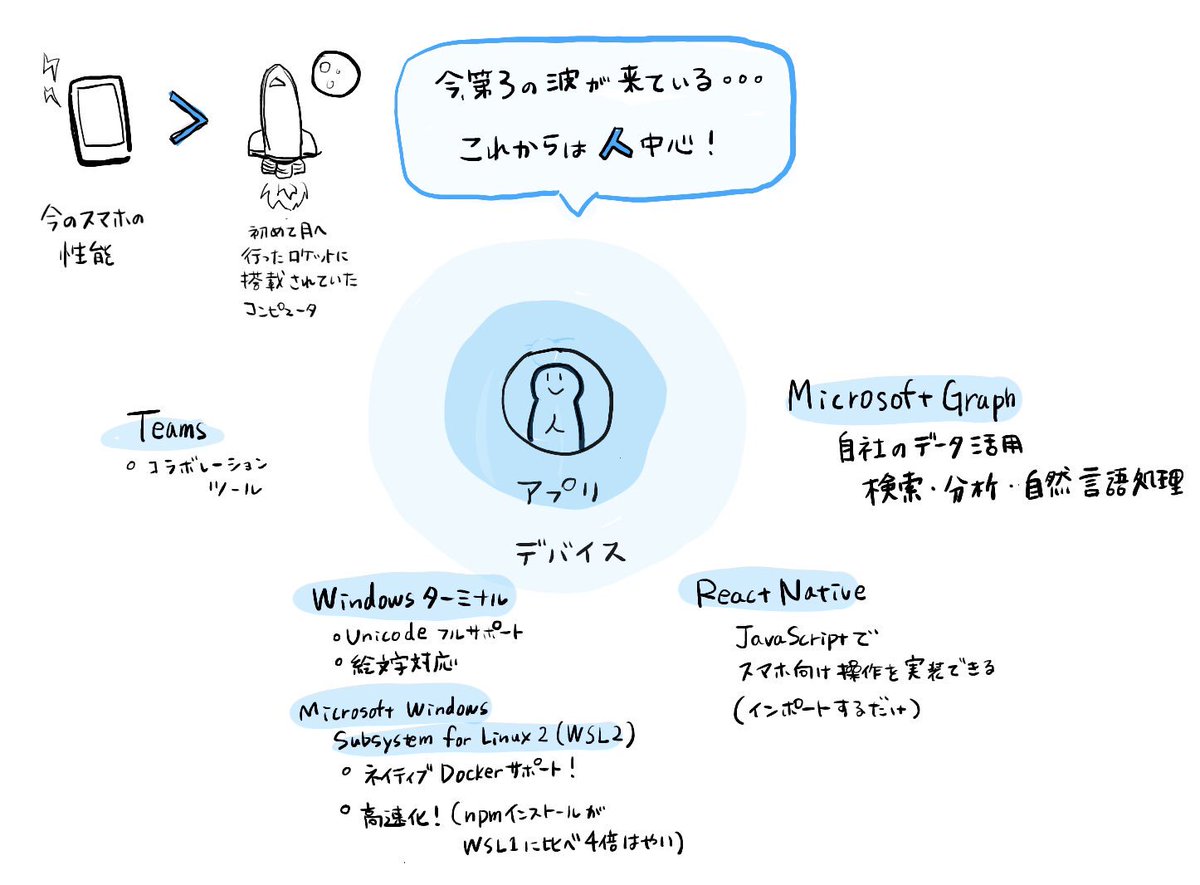 今、第3の波が来ている・・・
これからは人中心!
>
今のスマホの
性能
初めて月へ
行ったロケットに
搭載されていた
コンピュータ
人
アプリ
デバイス
Teams
○ コラボレーション
ツール
Microsoft Graph
自社のデータ活用
検索・分析・自然言語処理
Windows ターミナル
○ Unicode フルサポート
○ 絵文字対応
Microsoft Windows
Subsystem for Linux 2 (WSL2)
○ ネイティブ Docker サポート!
○ 高速化! (npmインストールが
WSL1に比べ4倍はやい)
React Native
JavaScriptで
スマホ向け操作を実装できる
(インポートするだけ)